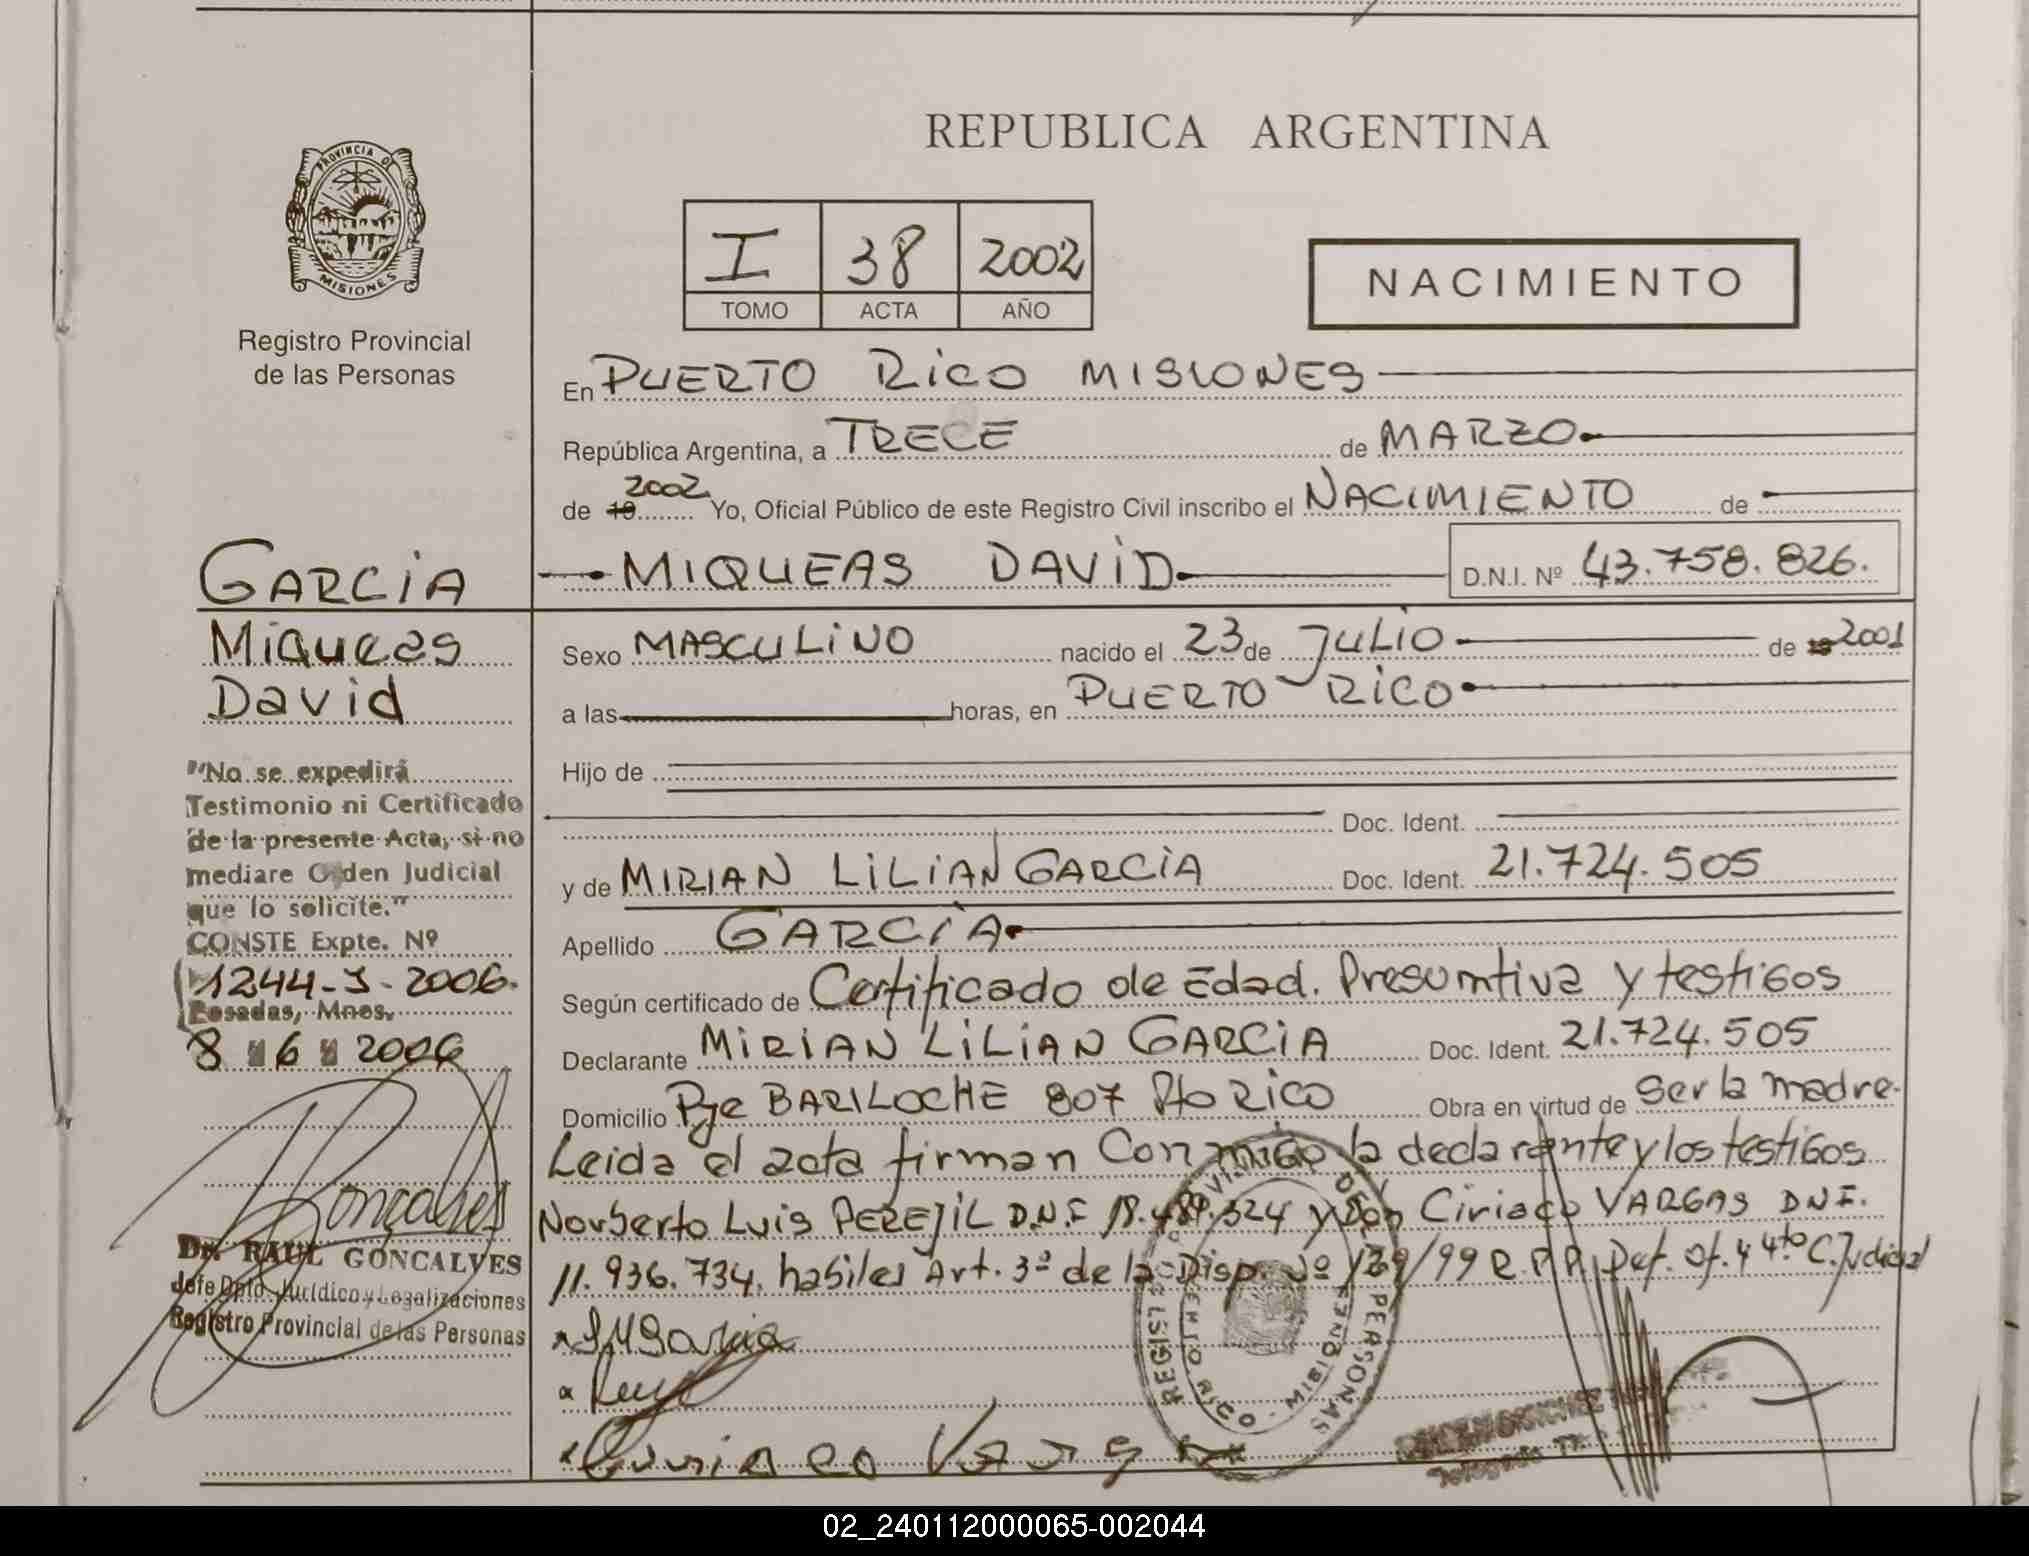 REPUBLICA ARGENTINA
PROVINCIA D
MISIONES
Registro Provincial
de las Personas
I 38 2002
TOMO ACTA AÑO
NACIMIENTO
En PUERTO RICO MISIONES
República Argentina, a TRECE de MARZO
de 19 2002 Yo, Oficial Público de este Registro Civil inscribo el NACIMIENTO de
MIQUEAS DAVID D.N.I. Nº 43.758.826.
GARCIA
Miqueas
David
Sexo MASCULINO nacido el 23 de JULIO de 2001
a las horas, en PUERTO RICO
Hijo de
Doc. Ident.
y de MIRIAN LILIAN GARCIA Doc. Ident. 21.724.505
Apellido GARCIA
Según certificado de Certificado de Edad. Presuntiva y testigos
Declarante MIRIAN LILIAN GARCIA Doc. Ident. 21.724.505
Domicilio Pje BARILOCHE 807 Pto RICO Obra en virtud de Ser la madre.
Leida el acta firman Conmigo la declarante y los testigos
Norberto Luis PEREJIL D.N.I 18.489.324 y Don Ciriaco VARGAS DNI.
11.936.734, habiles Art. 3º de la Disp. Nº 139/99 R.P.P. Def. Of. 4 4to C. Judicial
"No se expedirá
Testimonio ni Certificado
de la presente Acta, si no
mediare Orden Judicial
que lo solicite."
CONSTE Expte. Nº
1244-J-2006.
Posadas, Mnes.
8 6 2006
Goncalves
Dr. RAUL GONCALVES
Jefe Dpto. Jurídico y Legalizaciones
Registro Provincial de las Personas
Garcia
Ciriaco Vargas
REGIST PROVIN DE LAS PERSONAS
PUERTO RICO - MISIONES
02_240112000065-002044